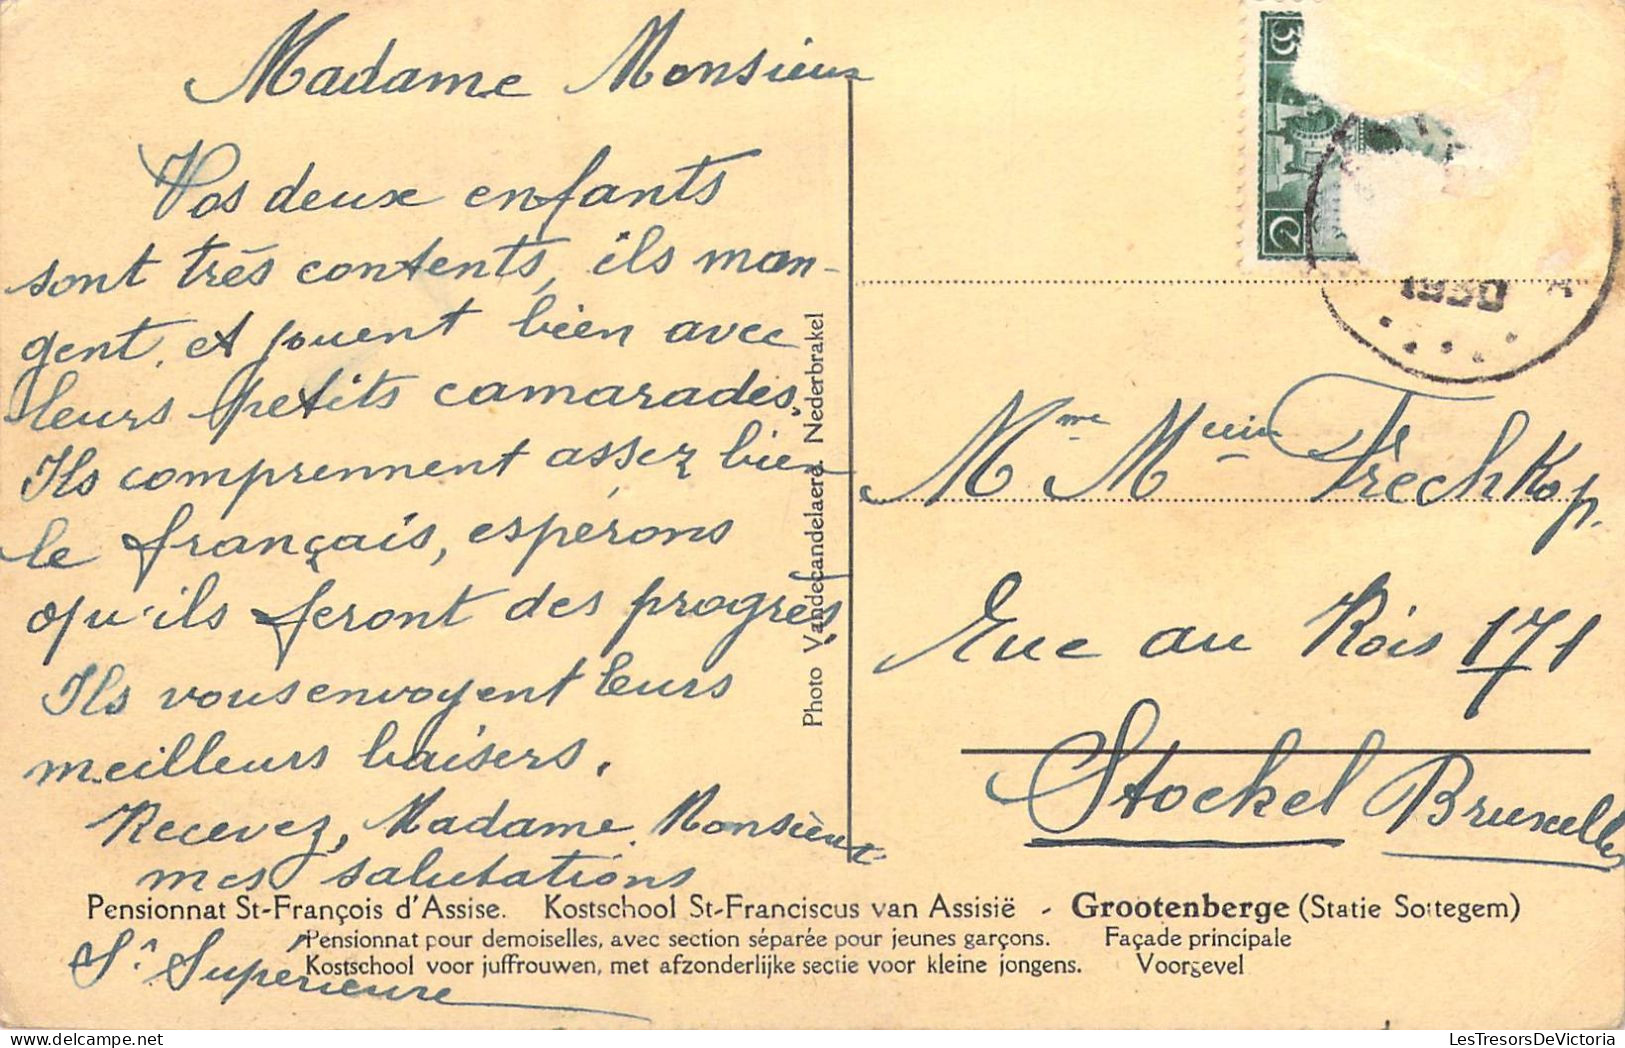 Madame Monsieur
Vos deux enfants
sont très contents, ils man-
gent et jouent bien avec
leurs petits camarades.
Ils comprennent assez bien
le français, espérons
qu'ils feront des progrès.
Ils vous envoyent leurs
meilleurs baisers.
Recevez, Madame Monsieur
mes salutations
Sr Supérieure
Photo Vandecandelaere. Nederbrakel
35
C
1930
A
Mme Mr Frechkop.
Rue au Bois 171
Stockel Bruxelles
Pensionnat St-François d'Assise. Kostschool St-Franciscus van Assisië - Grootenberge (Statie Sottegem)
Pensionnat pour demoiselles, avec section séparée pour jeunes garçons. Façade principale
Kostschool voor juffrouwen, met afzonderlijke sectie voor kleine jongens. Voorgevel
LesTresorsDeVictoria